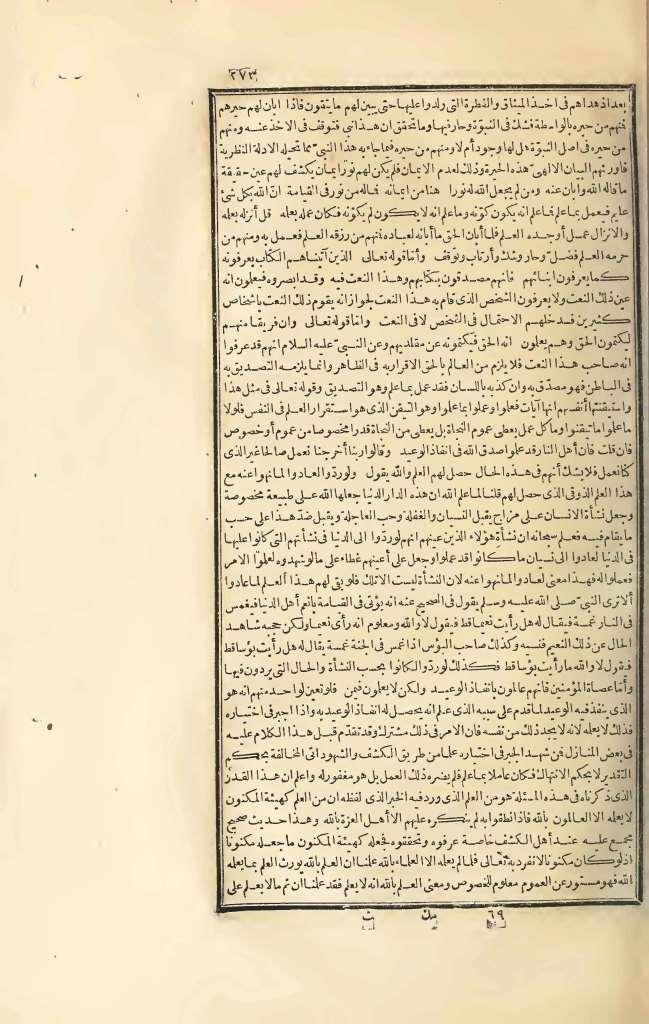 ٢٧٣
بعد اذ هداهم فى اخذ الميثاق والفطرة التى ولدوا عليها حتى يبين لهم ما يتقون فاذا ابان لهم حيرهم
فمنهم من حيره بالواسطة فشك فى النبوّة وحار فيها وما تحقق ان هذا نبى فتوقف فى الاخذ عنه ومنهم
من حيره فى اصل النبوّة هل لها وجود أم لا ومنهم من حيره فيما جاء به هذا النبى مما تحيله الادلة النظرية
فاورثهم البيان الالهى هذه الحيرة وذلك لعدم الايمان فلم يكن لهم نور ايمان يكشف لهم عن حقيقة
ما قاله الله وأبان عنه ومن لم يجعل الله له نورا هنا من ايمانه فماله من نور فى القيامة انّ الله بكل شئ
عليم فيعمل بما علم فما علم انه يكون كوّنه وما علم انه لا يكون لم يكوّنه فكان عمله بعلمه قل أنزله بعلمه
والانزال عمل أوجده العلم فلما أبان الحق ما أبانه لعباده فمنهم من رزقه العلم فعمل به ومنهم من
حرمه العلم فضل وحار وشك وارتاب وتوقف وأما قوله تعالى الذين آتيناهم الكتاب يعرفونه
كما يعرفون ابنائهم فانهم مصدقون بكتابهم وهذا النعت فيه وقد ابصروه فيعلمون انه
عين ذلك النعت ولا يعرفون الشخص الذى قام به هذا النعت لجواز انه يقوم ذلك النعت باشخاص
كثيرين فدخلهم الاحتمال فى الشخص لا فى النعت وأما قوله تعالى وان فريقا منهم
ليكتمون الحق وهم يعلمون انه الحق فيكتمونه عن مقلديهم وعن النبى عليه السلام انهم قد عرفوا
انه صاحب هذا النعت فلا يلزم من العالم بالحق الاقرار به فى الظاهر وانما يلزمه التصديق به
فى الباطن فهو مصدّق به وان كذبه باللسان فقد عمل بما علم وهو التصديق وقوله تعالى فى مثل هذا
واستيقنتها أنفسهم انها آيات فعلوا وعملوا بما علموا وهو التيقن الذى هو استقرار العلم فى النفس فلولا
ما علموا ما تيقنوا وما كل عمل يعطى عموم النجاة بل يعطى من النجاة قدرا مخصوصا من عموم أو خصوص
فان قلت فان أهل النار قد علموا صدق الله فى انفاذ الوعيد وقالوا ربنا أخرجنا نعمل صالحا غير الذى
كنا نعمل فلا يشك أنهم فى هذه الحال حصل لهم العلم والله يقول ولو ردّوا لعادوا لما نهوا عنه مع
هذا العلم الذوقى الذى حصل لهم قلنا لما علم الله ان هذه الدار الدنيا جعلها الله على طبيعة مخصوصة
وجعل نشأة الانسان على مزاج يقبل النسيان والغفلة وحب العاجلة ويقبل ضدّ هذا على حسب
ما يقام فيه فعلم سبحانه ان نشأة هؤلاء الذين عينهم انهم لو ردّوا الى الدنيا فى نشأتهم التى كانوا عليها
فى الدنيا لعادوا الى نسيان ما كانوا قد علموا وجعل على أعينهم غطاء على ما لو شهدوه لعلموا الامر
فعملوا له فهذا معنى لعادوا لما نهوا عنه لان النشأة ليست الا تلك فلو بقى لهم هذا العلم لما عادوا
ألا ترى النبى صلى الله عليه وسلم يقول فى الصحيح عنه انه يؤتى فى القيامة بانعم أهل الدنيا فيغمس
فى النار غمسة فيقال له هل رأيت نعيما قط فيقول لا والله ومعلوم انه رأى نعيما ولكن حجبه شاهد
الحال عن ذلك النعيم فنسيه وكذلك صاحب البؤس اذا غمس فى الجنة غمسة يقال له هل رأيت بؤسا قط
فيقول لا والله ما رأيت بؤسا قط فكذلك لو ردّوا لكانوا بحسب النشأة والحال التى يردون فيها
وأما عصاة المؤمنين فانهم عالمون بانفاذ الوعيد ولكن لا يعلمون فيمن فلو تعين لواحد منهم انه هو
الذى ينفذ فيه الوعيد لما قدم على سببه الذى علم انه يحصل له انفاذ الوعيد به واذا اجبر فى اختياره
فذلك لا يعلمه لانه لا يجد ذلك من نفسه فان الامر فى ذلك مشترك وقد تقدّم قبل هذا الكلام عليه
فى بعض المنازل فمن شهد الجبر فى اختياره علما من طريق الكشف والشهود أتى المخالفة بحكم
التقدير لا بحكم الانتهاك فكان عاملا بما علم فلم يضره ذلك العمل بل هو مغفور له واعلم ان هذا القدر
الذى ذكرناه فى هذه المسئلة هو من العلم الذى ورد فيه الخبر الذى لفظه ان من العلم كهيئة المكنون
لا يعلمه الا العالمون بالله فاذا نطقوا به لم ينكره عليهم الا أهل الغرّة بالله وهذا حديث صحيح
مجمع عليه عند أهل الكشف خاصة عرفوه وتحققوه فجعله كهيئة المكنون ما جعله مكنونا
اذ لو كان مكنونا لانفرد به تعالى فلما لم يعلمه الا العلماء بالله علمنا ان العلم بالله يورث العلم بما يعلمه
الله فهو مستور عن العموم معلوم للخصوص ومعنى العلم بالله انه لا يعلم فقد علمنا ان ثم ما لا يعلم على
٦٩ مك ث